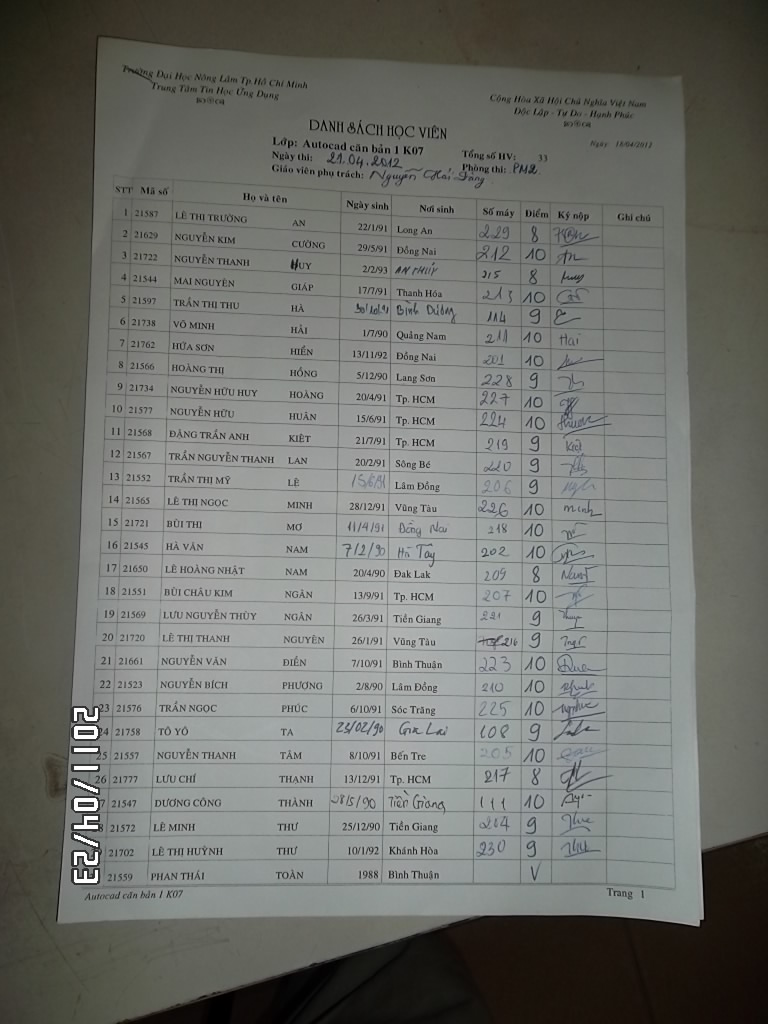 Trường Đại Học Nông Lâm Tp.Hồ Chí Minh
Trung Tâm Tin Học Ứng Dụng
Cộng Hòa Xã Hội Chủ Nghĩa Việt Nam
Độc Lập - Tự Do - Hạnh Phúc
Ngày: 18/04/2012
DANH SÁCH HỌC VIÊN
Lớp: Autocad căn bản 1 K07 Tổng số HV: 33
Ngày thi: 21.04.2012 Phòng thi: PM2
Giáo viên phụ trách: Nguyễn Hải Đăng
STT Mã số Họ và tên Ngày sinh Nơi sinh Số máy Điểm Ký nộp Ghi chú
1 21587 LÊ THỊ TRƯỜNG AN 22/1/91 Long An 229 8
2 21629 NGUYỄN KIM CƯỜNG 29/5/91 Đồng Nai 212 10
3 21722 NGUYỄN THANH HUY 2/2/93 215 8
4 21544 MAI NGUYÊN GIÁP 17/7/91 Thanh Hóa 213 10
5 21597 TRẦN THỊ THU HÀ 30/10/91 Bình Dương 114 9
6 21738 VÕ MINH HẢI 1/7/90 Quảng Nam 211 10 Hai
7 21762 HỨA SƠN HIỂN 13/11/92 Đồng Nai 201 10
8 21566 HOÀNG THỊ HỒNG 5/12/90 Lang Sơn 228 9
9 21734 NGUYỄN HỮU HUY HOÀNG 20/4/91 Tp. HCM 227 10
10 21577 NGUYỄN HỮU HUÂN 15/6/91 Tp. HCM 224 10
11 21568 ĐẶNG TRẦN ANH KIỆT 21/7/91 Tp. HCM 219 9 Kiệt
12 21567 TRẦN NGUYỄN THANH LAN 20/2/91 Sông Bé 220 9
13 21552 TRẦN THỊ MỸ LỆ Lâm Đồng 206 9
14 21565 LÊ THỊ NGỌC MINH 28/12/91 Vũng Tàu 226 10 minh
15 21721 BÙI THỊ MƠ 11/4/91 Đồng Nai 218 10
16 21545 HÀ VĂN NAM 7/2/90 Hà Tây 202 10
17 21650 LÊ HOÀNG NHẬT NAM 20/4/90 Đak Lak 209 8 Nam
18 21551 BÙI CHÂU KIM NGÂN 13/9/91 Tp. HCM 207 10
19 21569 LƯU NGUYỄN THÙY NGÂN 26/3/91 Tiền Giang 221 9
20 21720 LÊ THỊ THANH NGUYÊN 26/1/91 Vũng Tàu 216 9
21 21661 NGUYỄN VĂN ĐIỀN 7/10/91 Bình Thuận 223 10
22 21523 NGUYỄN BÍCH PHƯỢNG 2/8/90 Lâm Đồng 210 10
23 21576 TRẦN NGỌC PHÚC 6/10/91 Sóc Trăng 225 10
24 21758 TÔ YÔ TA 23/02/90 Gia Lai 108 9
25 21557 NGUYỄN THANH TÂM 8/10/91 Bến Tre 205 10
26 21777 LƯU CHÍ THANH 13/12/91 Tp. HCM 217 8
7 21547 DƯƠNG CÔNG THÀNH 08/5/90 Tiền Giang 111 10
8 21572 LÊ MINH THƯ 25/12/90 Tiền Giang 204 9 Thư
21702 LÊ THỊ HUỲNH THƯ 10/1/92 Khánh Hòa 230 9 Thư
21559 PHAN THÁI TOÀN 1988 Bình Thuận V
Autocad căn bản 1 K07 Trang 1
2011/04/23